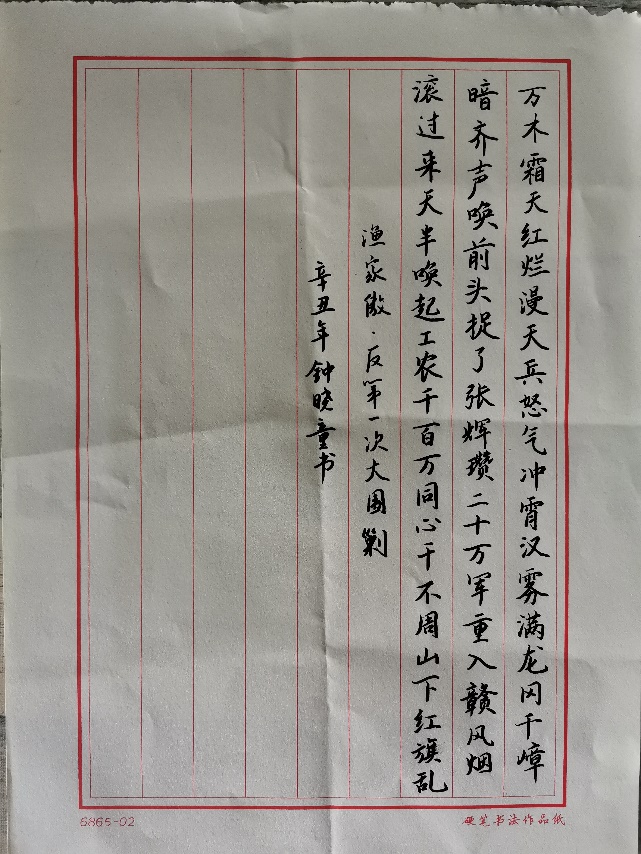 万木霜天红烂漫天兵怒气冲霄汉雾满龙冈千嶂
暗齐声唤前头捉了张辉瓒二十万军重入赣风烟
滚过来天半唤起工农千百万同心干不周山下红旗乱
渔家傲·反第一次大围剿
辛丑年钟晓童书
6865-02
硬笔书法作品纸